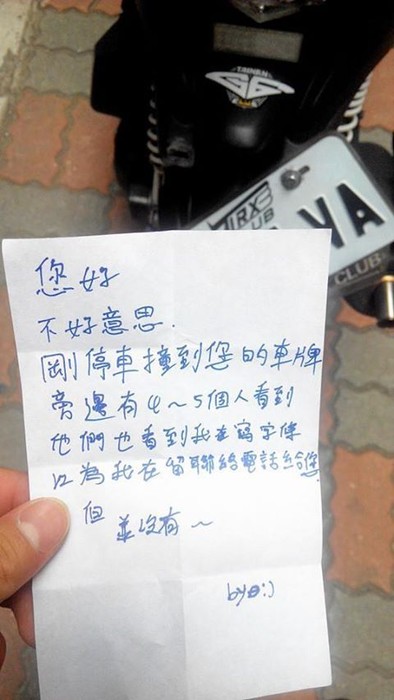 TAINAN
G6
TIRX
CLUB
VA
CLUB
您好
不好意思.
剛停車撞到您的車牌
旁邊有4~5個人看到
他們也看到我在寫字條
以為我在留聯絡電話給您
但 並沒有~
bye:)